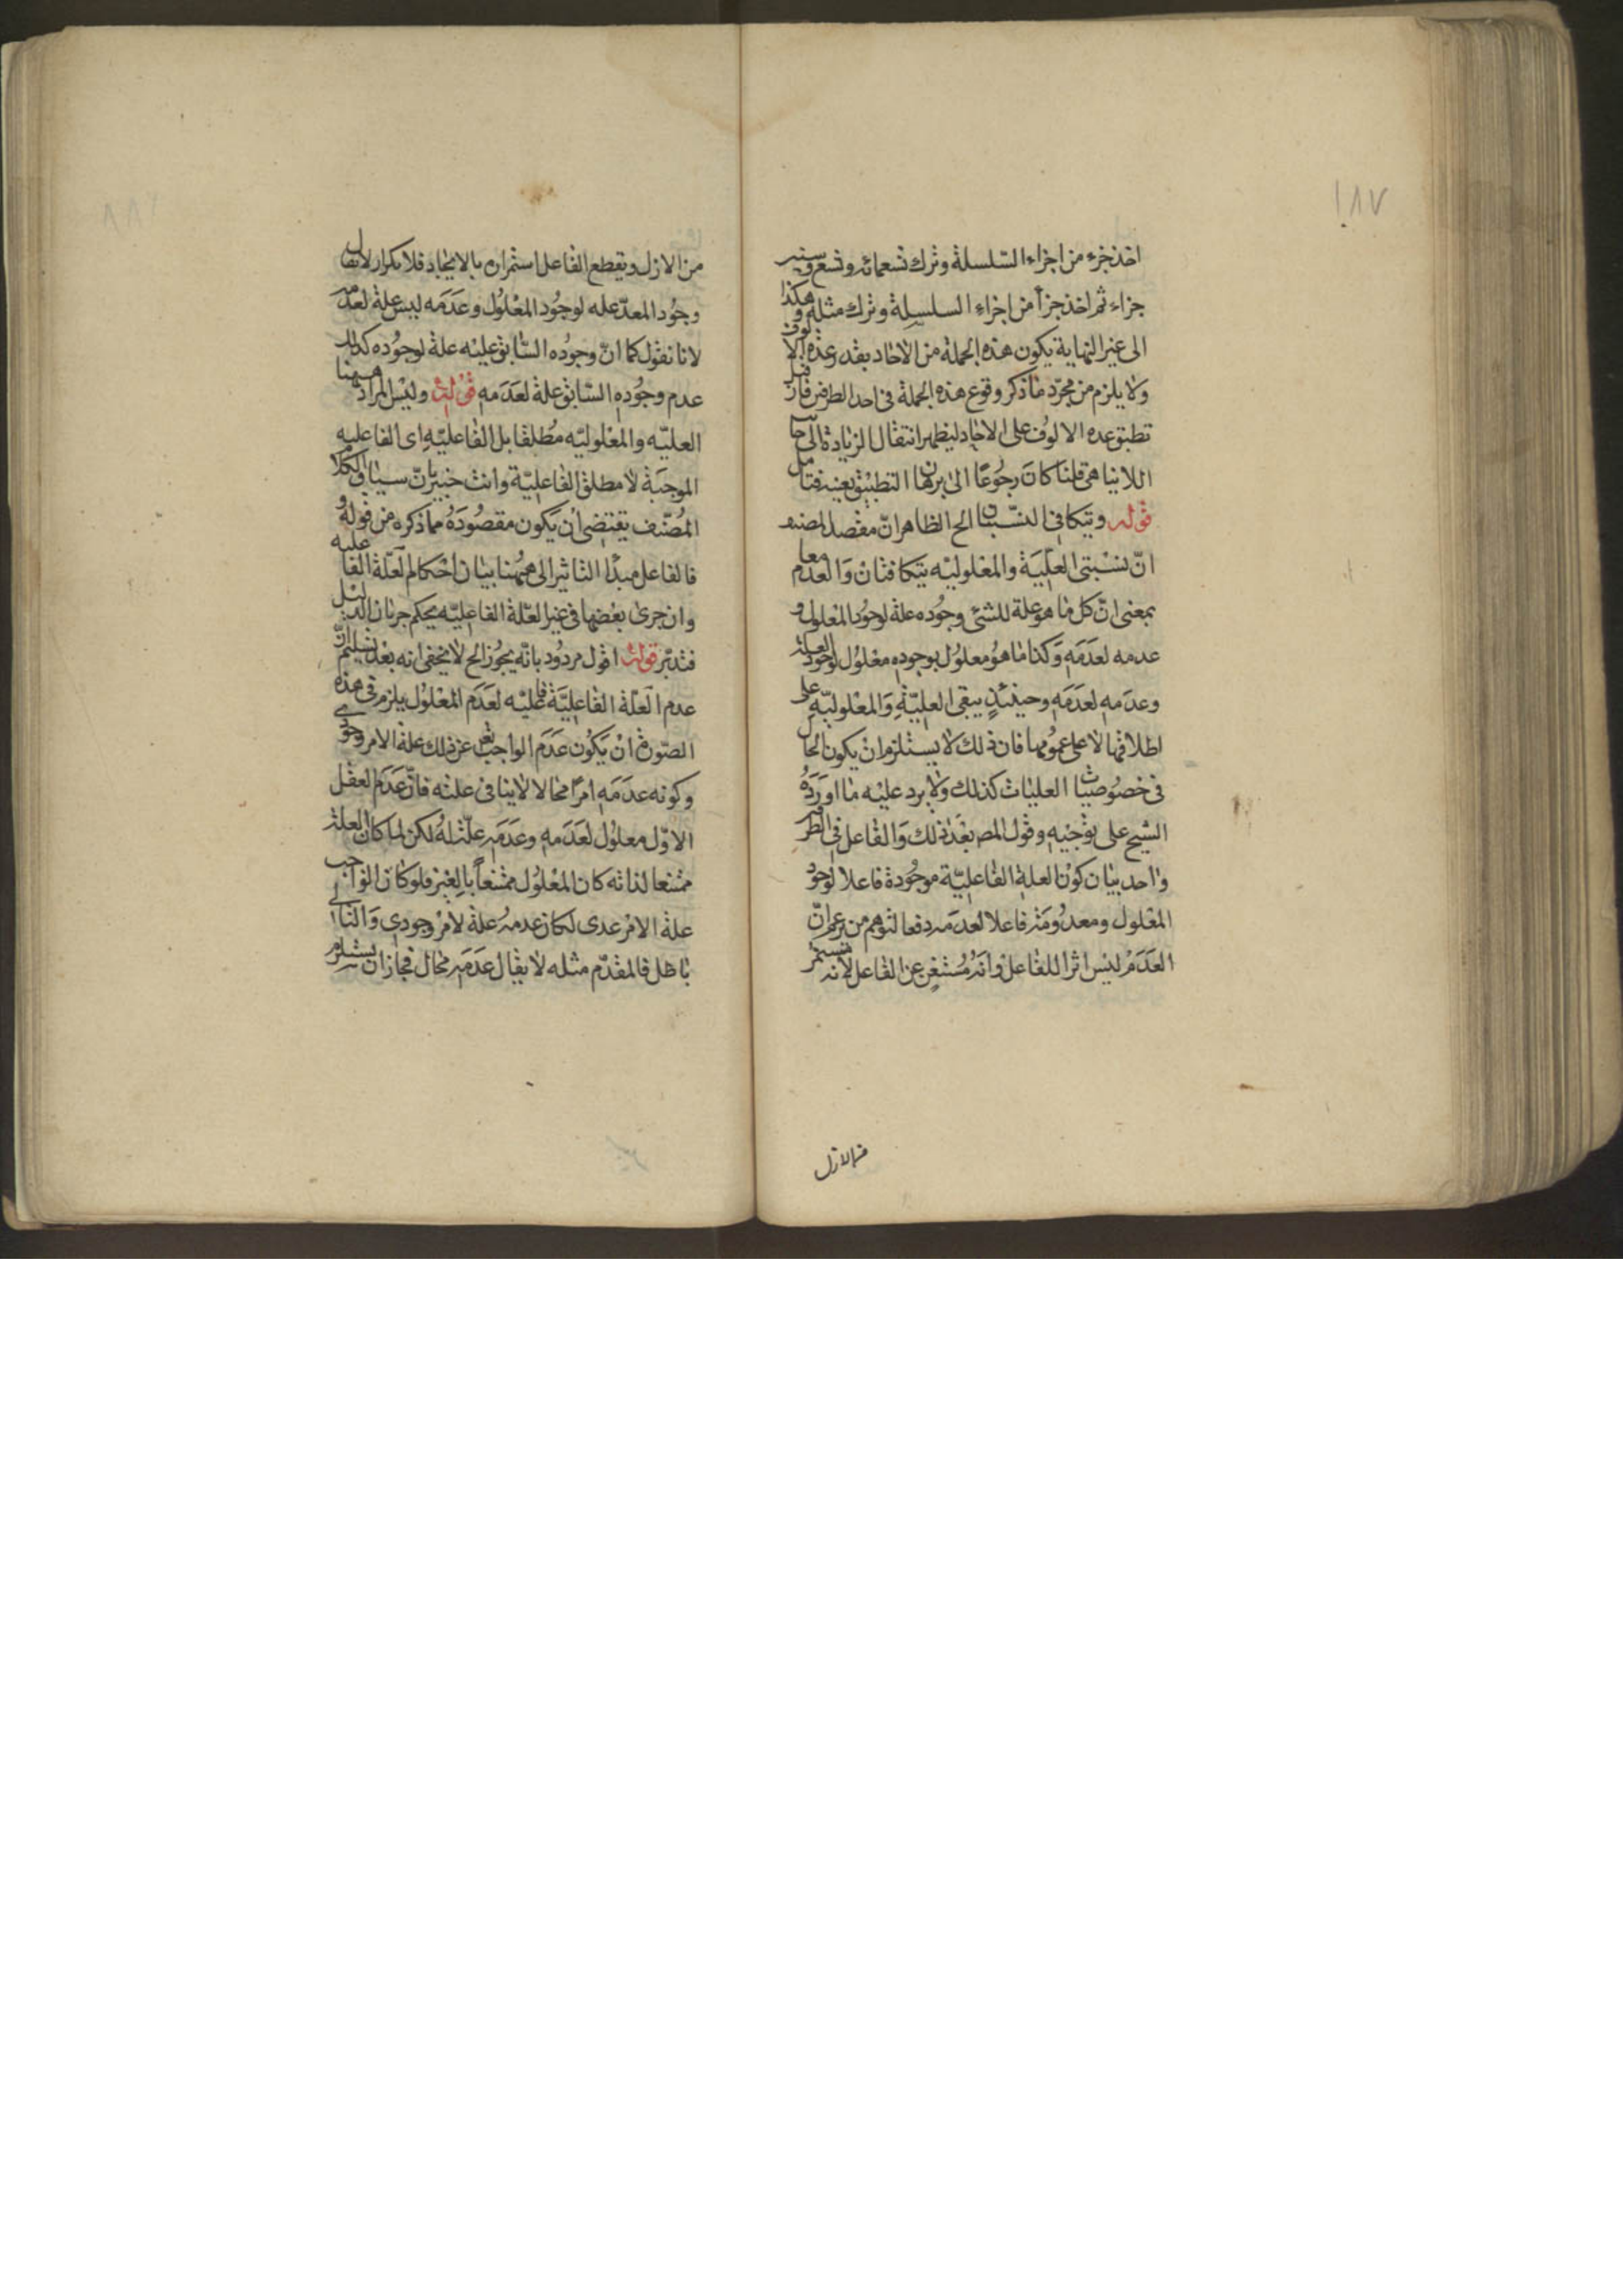 ١٨٧
اخذ جزء من اجزاء السلسلة وترك تسعمائه وتسع وتسعين
جزاء ثم اخذ جزأ من اجزاء السلسلة وترك مثله وهكذا
الى غير النهاية يكون هذه الجملة من الاحاد بقدر عدة الالوف
ولا يلزم من مجرّد ما ذكر وقوع هذه الجملة فى احد الطرفين فان قيل
تطبق عده الالوف على الاحاد ليظهر انتقال الزيادة الى جانب
اللانياهى قلنا كان رجوعًا الى برهان التطبيق بعينه فتأمل
قوله ويتكافى النسبتان الخ الظاهر انّ مقصد المصنف
انّ نسبتى العلّيّة والمعلوليه يتكافئان والعدم معا
بمعنى انّ كل ما هو علة للشئ وجوده علة لوجود المعلول و
عدمه لعدمه وكذا ما هو معلول بوجوده معلول لوجود العلة
وعدمه لعدمه وحينئذٍ يبقى العليّة والمعلوليّة على
اطلاقها لا على عمومها فان ذلك لا يستلزم ان يكون الحال
فى خصوصيات العليات كذلك ولا يرد عليه ما اورده
الشيح على توجيه وقول المص بعد ذلك والفاعل فى الطرفين
واحد بيان كون العلة الفاعليّة موجودة فاعلا لوجود
المعلول ومعدومة فاعلا لعدمه دفعا لتوهم من زعم انّ
العدم ليس اثرا للفاعل وانه مستغن عن الفاعل لانه يستمر
من الازل
من الازل ويقطع الفاعل استمراره بالايجاد فلا تكرار لا يقال
وجود المعدّ عله لوجود المعلول وعدمه ليس علة لعدمه
لانا نقول كما انّ وجوده السّابق عليه علة لوجوده كذلك
عدم وجوده السّابق علة لعدمه قوله وليس المراد ههنا
العليّه والمعلوليّه مطلقا بل الفاعليّه اى الفاعليه
الموجبة لا مطلق الفاعليّة وانت خبير بانّ سياق الكلام
المصنّف يقتضى ان يكون مقصوده مما ذكره من قوله و
فالفاعل مبدأ التاثير الى ههنا بيان احكام العلّة الفاعليه
وان جرى بعضها فى غير العلّة الفاعليّه بحكم جريان الدليل
فتدبّر قوله اقول مردود بانّه يجوز الخ لا يخفى انه بعد تسليم انّ
عدم العلّة الفاعليّة فاعليّه لعدم المعلول يلزم فى هذه
الصّورة ان يكون عدم الواجب تعالى عن ذلك علة الامر وجودى
وكونه عدمه امرًا محالا لا ينافى علته فانّ عدم العقل
الاوّل معلول لعدمه وعدمه علّة له لكن لما كان العلة
ممتنعا لذاته كان المعلول ممتنعاً بالغير فلو كان الواجب
علة الامر عدى لكان عدمه علة لامر وجودى والتالى
باطل فالمقدّم مثله لا يقال عدمه محال فجاز ان يستلزم